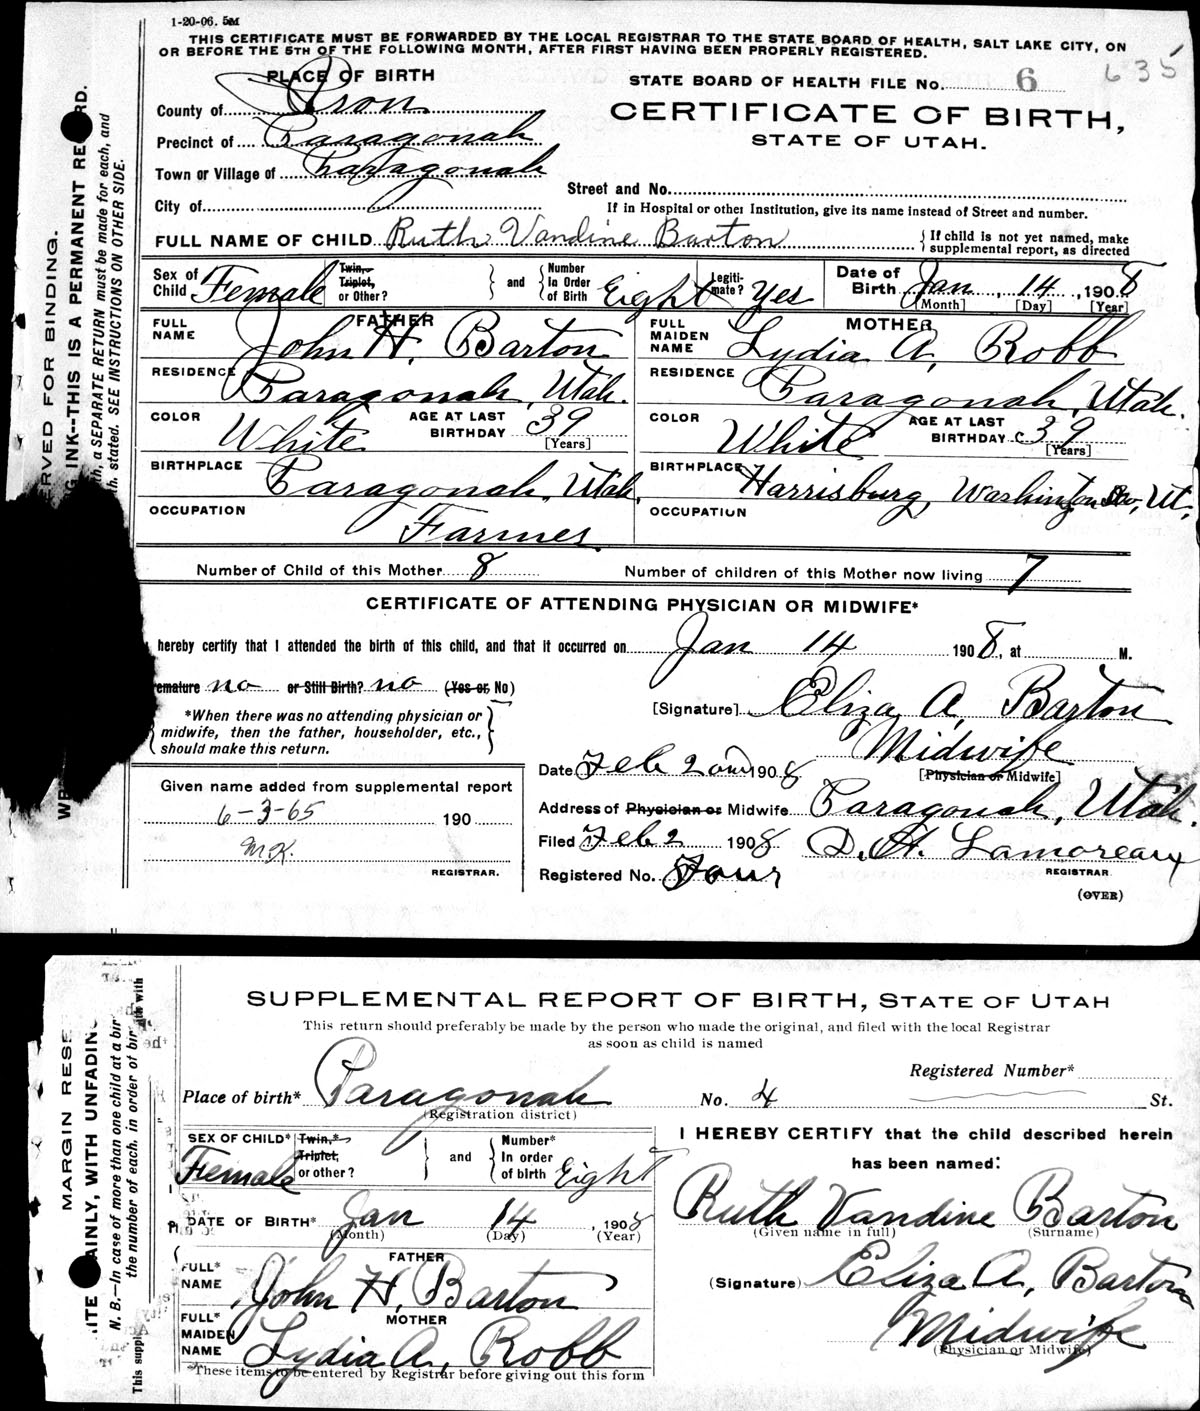 1-20-06. 5M
THIS CERTIFICATE MUST BE FORWARDED BY THE LOCAL REGISTRAR TO THE STATE BOARD OF HEALTH, SALT LAKE CITY, ON
OR BEFORE THE 5TH OF THE FOLLOWING MONTH, AFTER FIRST HAVING BEEN PROPERLY REGISTERED.
635
PLACE OF BIRTH
STATE BOARD OF HEALTH FILE No. 6
County of Iron
CERTIFICATE OF BIRTH,
STATE OF UTAH.
Precinct of Paragonah
Town or Village of Paragonah
Street and No.
City of
If in Hospital or other Institution, give its name instead of Street and number.
FULL NAME OF CHILD Ruth Vandine Barton
If child is not yet named, make
supplemental report, as directed
Sex of Child Female
Twin, Triplet, or Other?
and
Number In Order of Birth Eight
Legiti-mate? Yes
Date of Birth Jan 14, 1908
[Month] [Day] [Year]
FATHER
FULL NAME John H. Barton
MOTHER
FULL MAIDEN NAME Lydia A. Robb
RESIDENCE Paragonah, Utah.
RESIDENCE Paragonah, Utah.
COLOR White AGE AT LAST BIRTHDAY 39 [Years]
COLOR White AGE AT LAST BIRTHDAY 39 [Years]
BIRTHPLACE Paragonah, Utah,
BIRTHPLACE Harrisburg, Washington Co, Ut,
OCCUPATION Farmer.
OCCUPATION
Number of Child of this Mother 8
Number of children of this Mother now living 7
CERTIFICATE OF ATTENDING PHYSICIAN OR MIDWIFE*
hereby certify that I attended the birth of this child, and that it occurred on Jan 14 1908, at M.
emature no or Still Birth? no (Yes or No)
[Signature] Eliza A. Barton
Midwife
[Physician or Midwife]
*When there was no attending physician or
midwife, then the father, householder, etc.,
should make this return.
Date Feb 2 1908
Given name added from supplemental report
6-3-65 190
MK.
REGISTRAR.
Address of Physician or Midwife Paragonah, Utah.
Filed Feb 2 1908 D. H. Lamoreaux
REGISTRAR
Registered No. Four
(OVER)
ERVED FOR BINDING.
NG INK--THIS IS A PERMANENT RE RD.
h, a SEPARATE RETURN must be made for each, and
th. stated. SEE INSTRUCTIONS ON OTHER SIDE.
SUPPLEMENTAL REPORT OF BIRTH, STATE OF UTAH
This return should preferably be made by the person who made the original, and filed with the local Registrar
as soon as child is named
Registered Number*
Place of birth* Paragonah No. 4 St.
(Registration district)
SEX OF CHILD* Female
Twin,* Triplet, or other?
and
Number* In order of birth Eight
I HEREBY CERTIFY that the child described herein
has been named:
Ruth Vandine Barton
(Given name in full) (Surname)
DATE OF BIRTH* Jan 14, 1908
(Month) (Day) (Year)
FATHER
FULL* NAME John H. Barton
(Signature) Eliza A. Barton
Midwife
(Physician or Midwife)
MOTHER
FULL* MAIDEN NAME Lydia A. Robb
*These items to be entered by Registrar before giving out this form
MARGIN RESE
ITE AINLY, WITH UNFADIN
N. B.—In case of more than one child at a bir
the number of each, in order of bir
This suppl